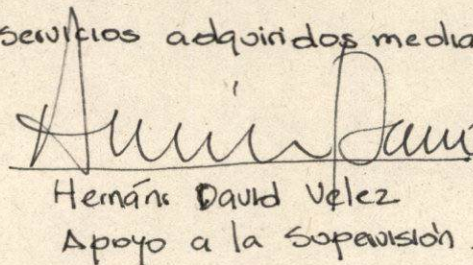 servicios adquiridos media
Hernán David Velez
Apoyo a la Supervisión